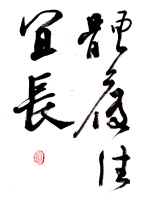 體履佳
宜長